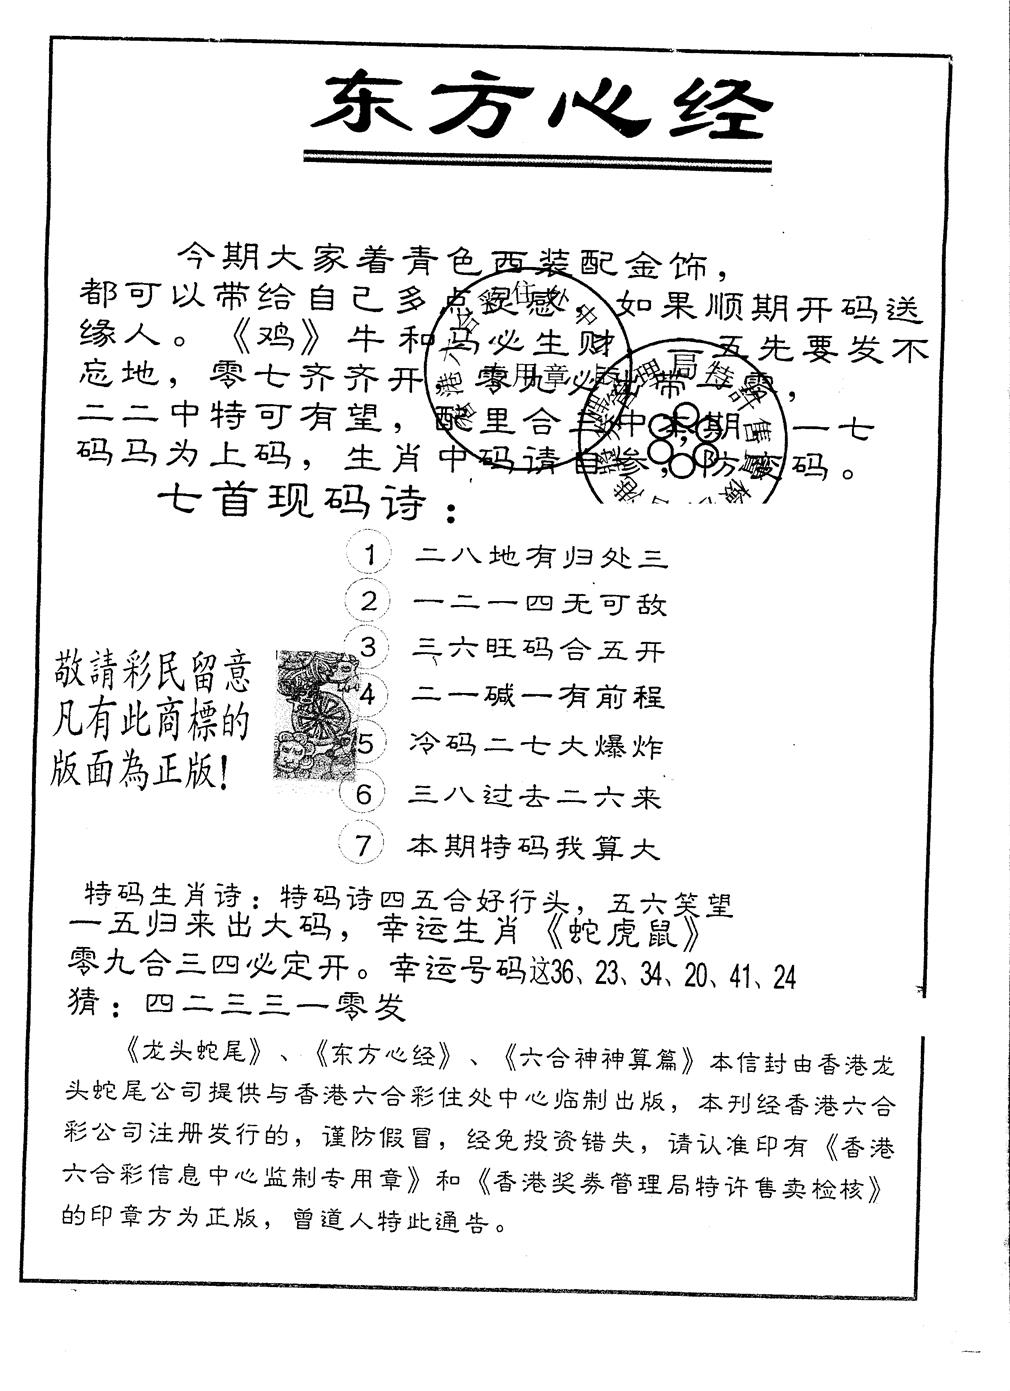 东方心经
今期大家着青色西装配金饰，
都可以带给自己多点灵感，如果顺期开码送
缘人。《鸡》牛和马必生财，一五先要发不
忘地，零七齐齐开，零九必出带一零，
二二中特可有望，配里合三中本期，一七
码马为上码，生肖中码请自参，防资码。
七首现码诗：
1 二八地有归处三
2 一二一四无可敌
3 三六旺码合五开
4 二一碱一有前程
5 冷码二七大爆炸
6 三八过去二六来
7 本期特码我算大
敬請彩民留意
凡有此商標的
版面為正版！
特码生肖诗：特码诗四五合好行头，五六笑望
一五归来出大码，幸运生肖《蛇虎鼠》
零九合三四必定开。幸运号码这36、23、34、20、41、24
猜：四二三三一零发
《龙头蛇尾》、《东方心经》、《六合神神算篇》本信封由香港龙
头蛇尾公司提供与香港六合彩住处中心临制出版，本刊经香港六合
彩公司注册发行的，谨防假冒，经免投资错失，请认准印有《香港
六合彩信息中心监制专用章》和《香港奖券管理局特许售卖检核》
的印章方为正版，曾道人特此通告。